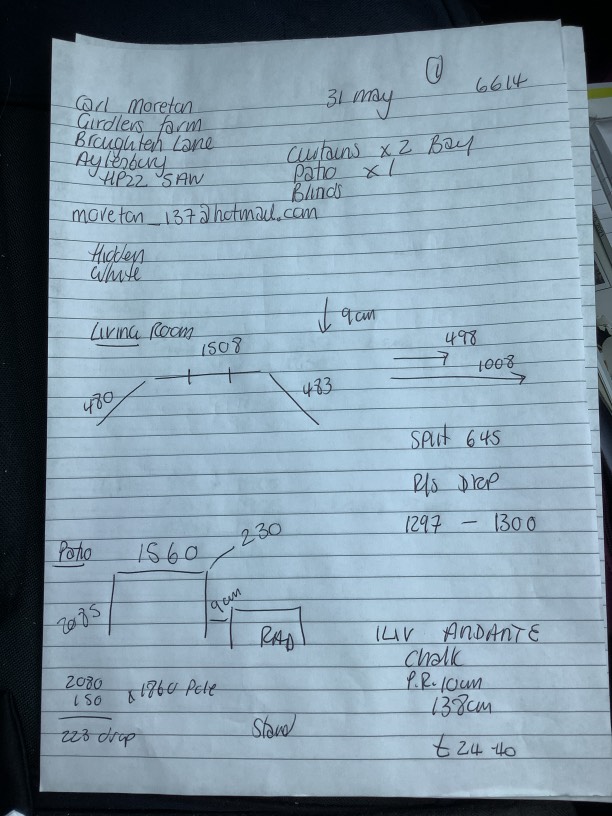 ①
Carl Moretan
31 may
6614
Girdlers farm
Broughten Lane
Aylesbury
HP22 5AW
Curtains x 2 Bay
Patio x 1
Blinds
moretan_137@hotmail.com
Hidden
White
Living Room
↓ 9cm
1508
480
483
498
1008
Split 645
R/s Drop
1297 - 1300
Patio
1560
230
2085
9cm
RAD
2080
150
x 1860 Pole
223 drop
Stand
ILIV ANDANTE
Chalk
P.R. 10cm
138cm
£24-40